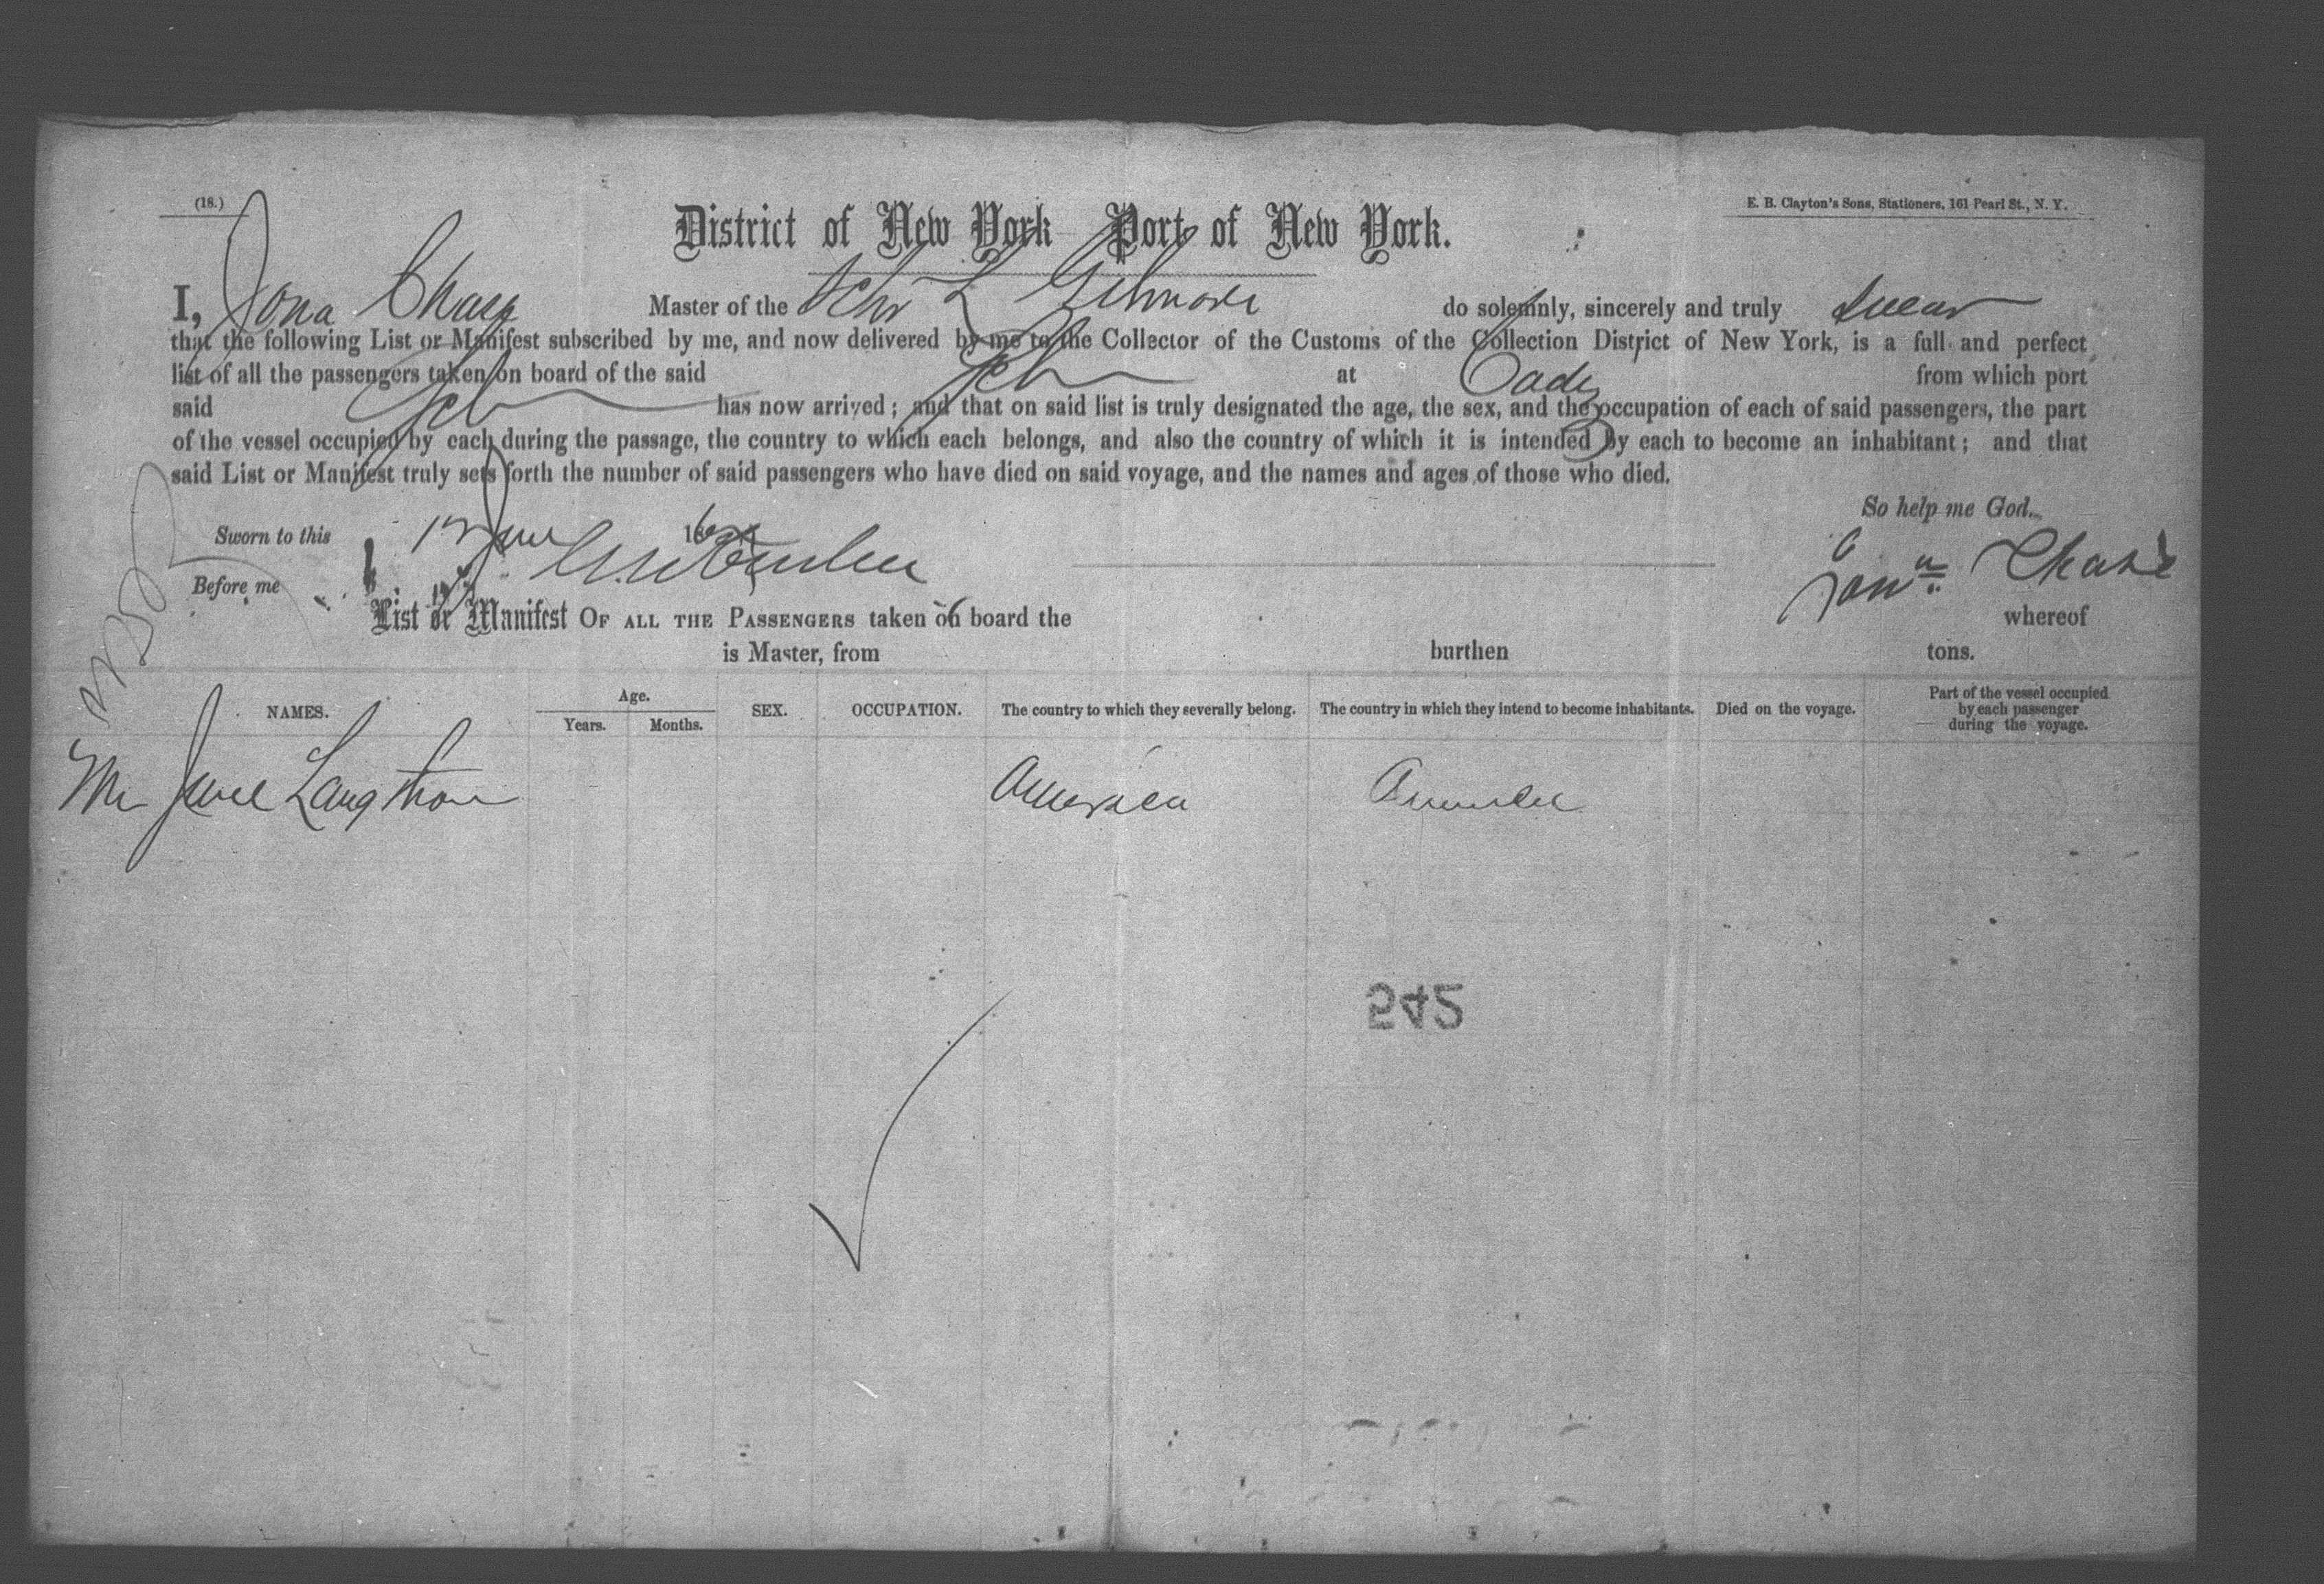 (18.)
E. B. Clayton's Sons, Stationers, 161 Pearl St., N. Y.
District of New York Port of New York.
I, Jona Chase Master of the Schr L Gilmore do solemnly, sincerely and truly swear
that the following List or Manifest subscribed by me, and now delivered by me to the Collector of the Customs of the Collection District of New York, is a full and perfect
list of all the passengers taken on board of the said Sch at Cadiz from which port
said Sch has now arrived; and that on said list is truly designated the age, the sex, and the occupation of each of said passengers, the part
of the vessel occupied by each during the passage, the country to which each belongs, and also the country of which it is intended by each to become an inhabitant; and that
said List or Manifest truly sets forth the number of said passengers who have died on said voyage, and the names and ages of those who died.
So help me God.
Sworn to this 186
Jona. Chase
Before me
List or Manifest OF ALL THE PASSENGERS taken on board the whereof
is Master, from burthen tons.
NAMES. Age. Years. Months. SEX. OCCUPATION. The country to which they severally belong. The country in which they intend to become inhabitants. Died on the voyage. Part of the vessel occupied by each passenger during the voyage.
America America
542